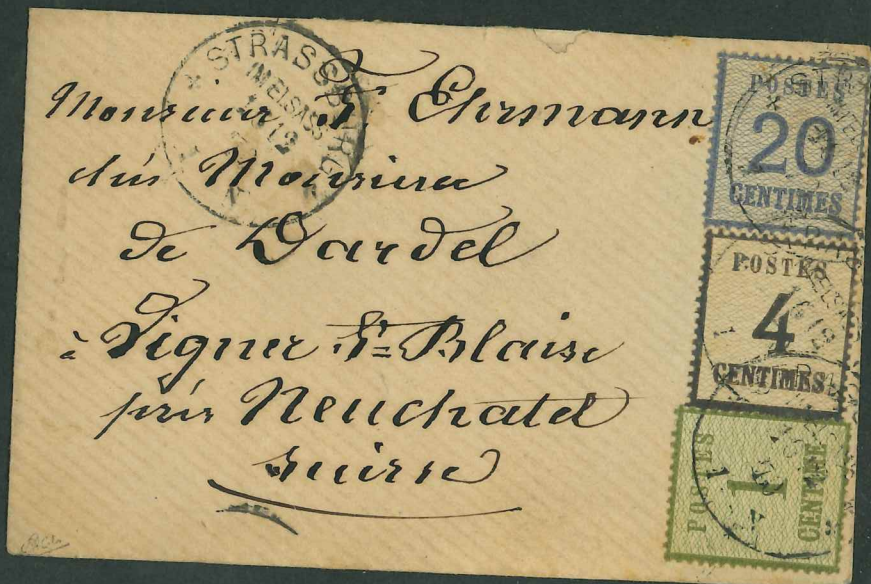 STRASSBURG
IM ELSASS
12
Monsieur F. Ehrmann
chés Monsieur
de Dardel
à Vigner St= Blaise
près Neuchatel
Suisse
POSTES
20
CENTIMES
POSTES
4
CENTIMES
POSTES
1
CENTIME